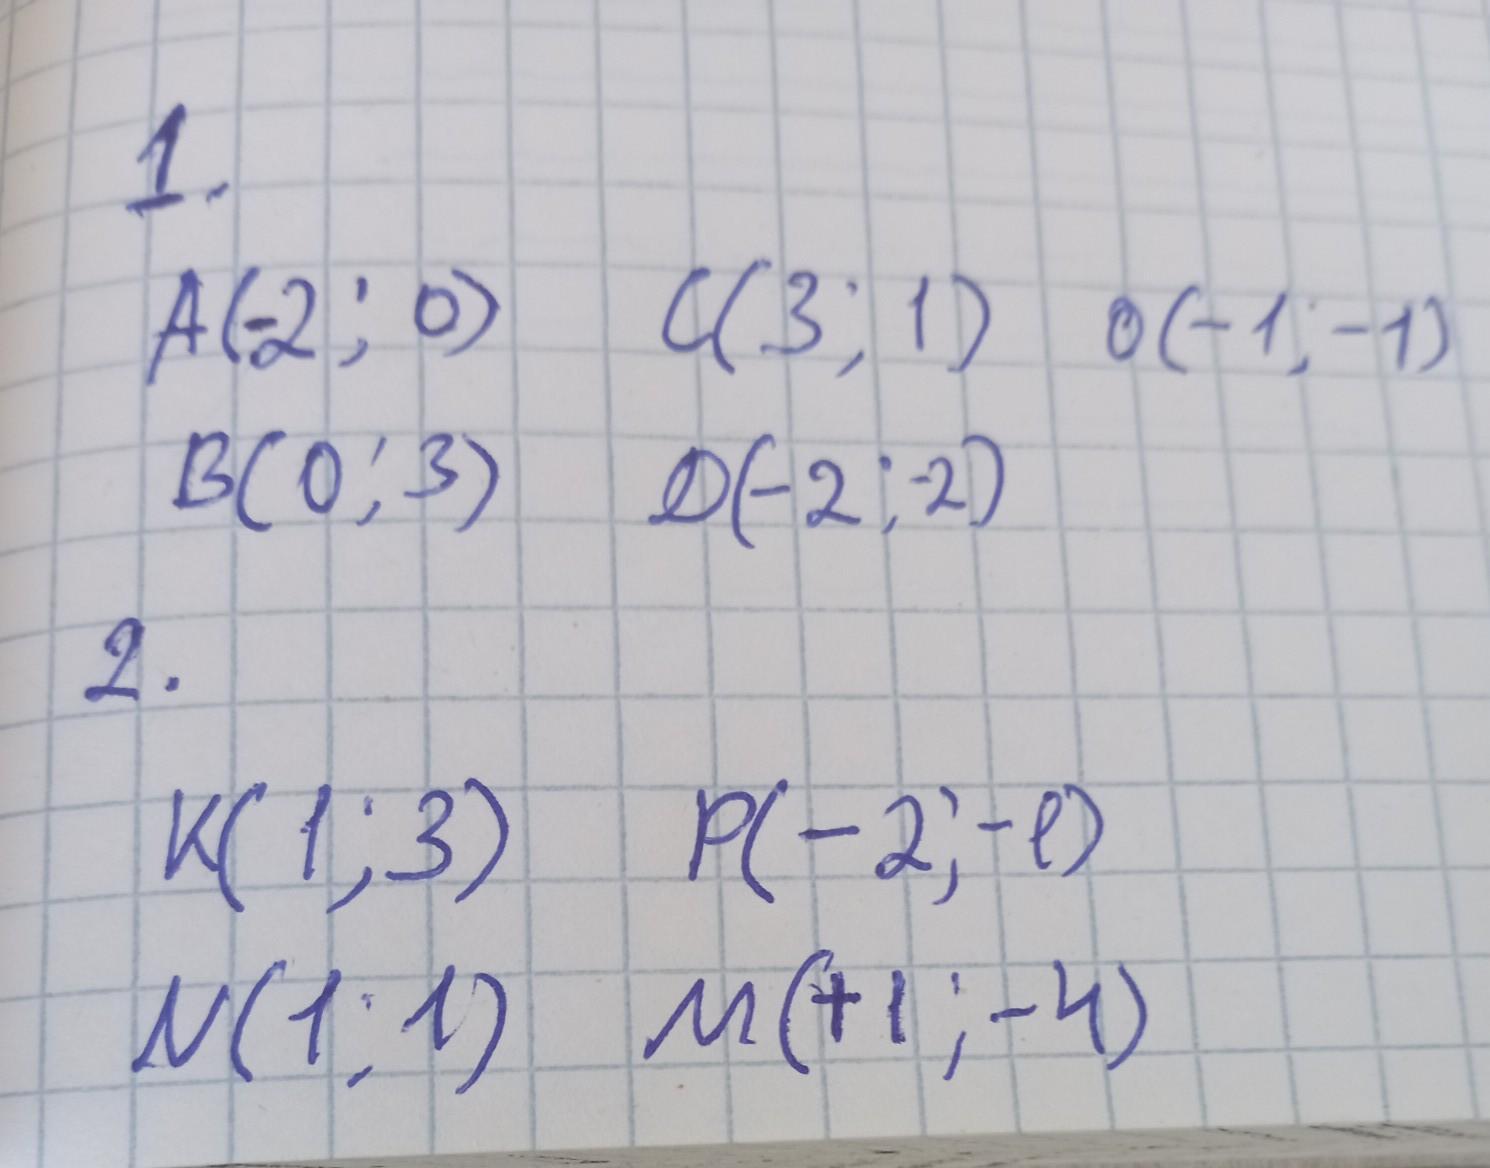 1.
A(-2; 0) C(3; 1) O(-1; -1)
B(0; 3) D(-2; -2)
2.
K(1; 3) P(-2; -1)
N(1; 1) M(+1; -4)